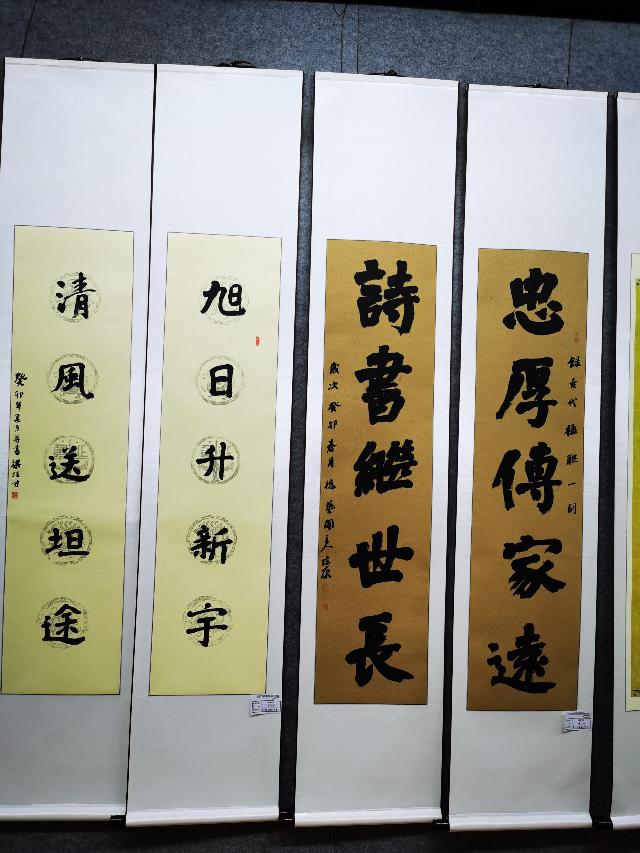 忠厚傳家遠
錄古代楹聯一副
詩書繼世長
歲次癸卯春月
旭日升新宇
清風送坦途
癸卯年